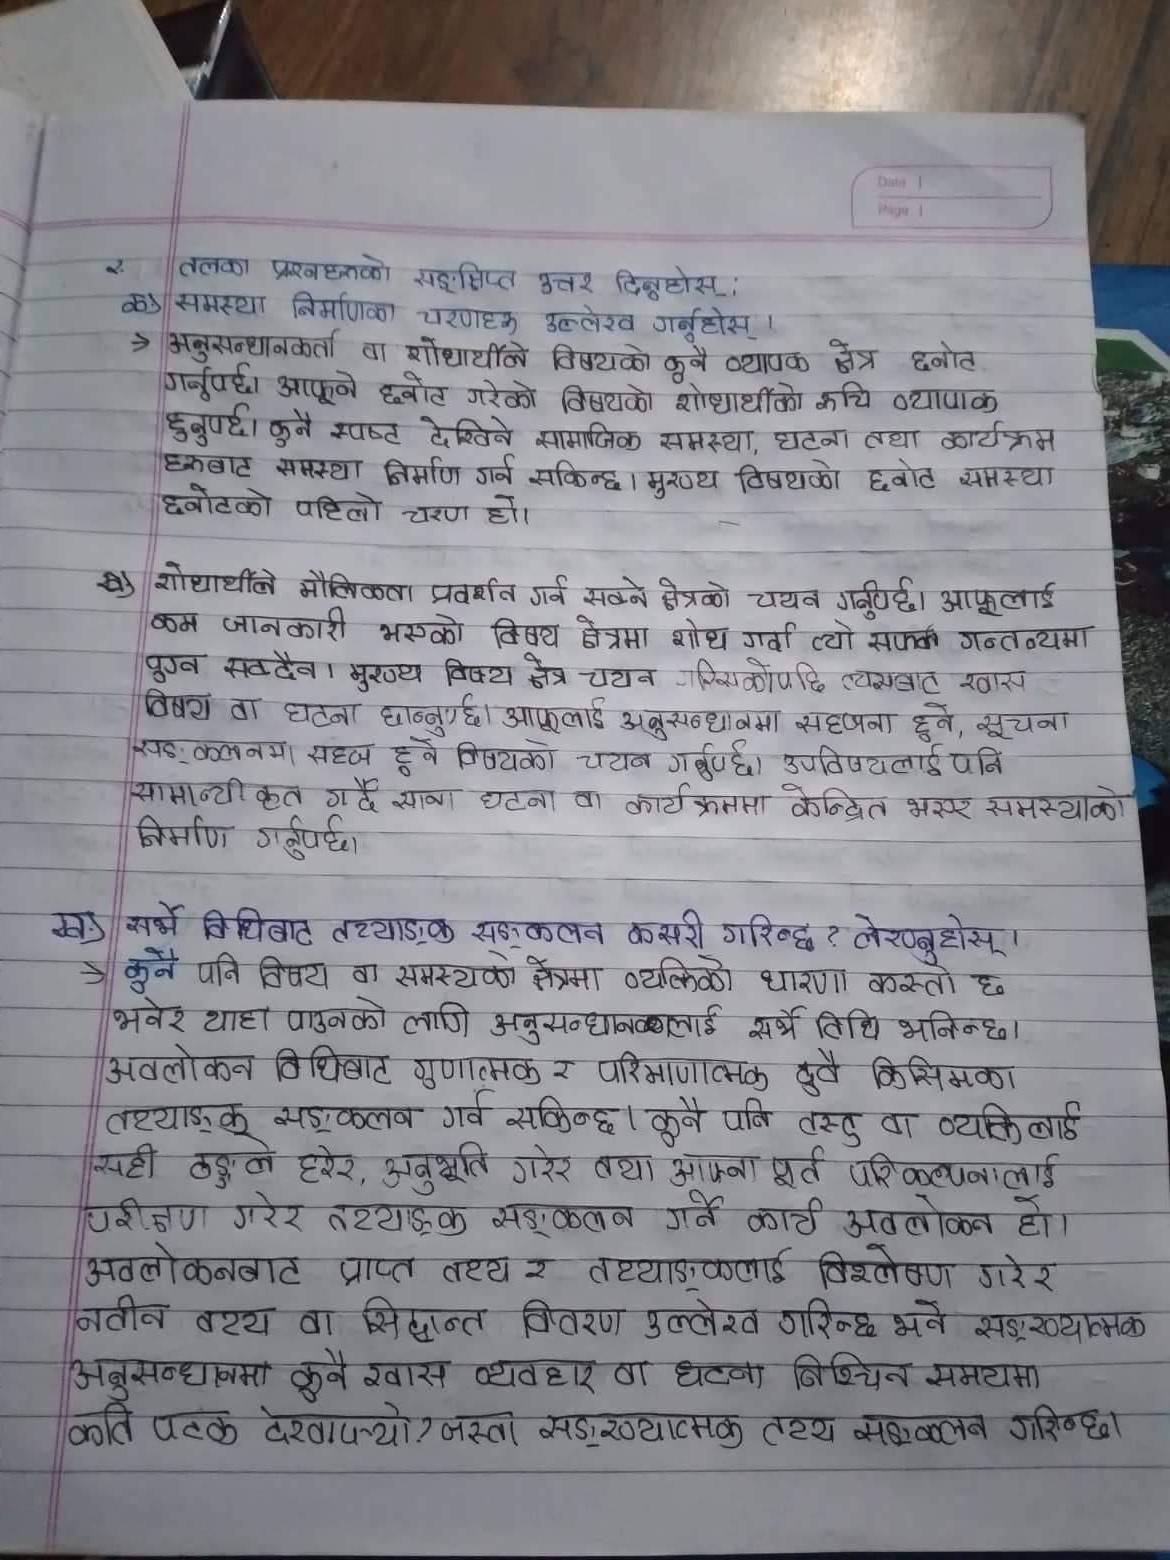 Date
Page
२. तलका प्रश्नहरूको सङ्क्षिप्त उत्तर दिनुहोस् :
क) समस्या निर्माणका चरणहरू उल्लेख गर्नुहोस् ।
→ अनुसन्धानकर्ता वा शोधार्थीले विषयको कुनै व्यापक क्षेत्र छनोट
गर्नुपर्छ। आफूने छनोट गरेको विषयको शोधार्थीको रुचि व्यापाक
हुनुपर्छ। कुनै स्पष्ट देखिने सामाजिक समस्या, घटना तथा कार्यक्रम
हरूबाट समस्या निर्माण गर्न सकिन्छ। मुख्य विषयको छनोट समस्या
छनोटको पहिलो चरण हो।
ख) शोधार्थीले मौलिकता प्रदर्शन गर्न सक्ने क्षेत्रको चयन गर्नुपर्छ। आफूलाई
कम जानकारी भएको विषय क्षेत्रमा शोध गर्दा त्यो सफल गन्तव्यमा
पुग्न सक्दैन। मुख्य विषय क्षेत्र चयन गरिसकेपछि त्यसबाट खास
विषय वा घटना छान्नुपर्छ। आफूलाई अनुसन्धानमा सहजना हुने, सूचना
सङ्कलनमा सहज हुने विषयको चयन गर्नुपर्छ। उपविषयलाई पनि
सामान्यीकृत गर्दै साना घटना वा कार्यक्रममा केन्द्रित भएर समस्याको
निर्माण गर्नुपर्छ।
ख) सर्भे विधिबाट तथ्याङ्क सङ्कलन कसरी गरिन्छ ? लेख्नुहोस् ।
→ कुनै पनि विषय वा समस्यको क्षेत्रमा व्यक्तिको धारणा कस्तो छ
भनेर थाहा पाउनको लागि अनुसन्धानकालाई सर्भे विधि भनिन्छ।
अवलोकन विधिबाट गुणात्मक र परिमाणात्मक दुवै किसिमका
तथ्याङ्क सङ्कलन गर्न सकिन्छ। कुनै पनि वस्तु वा व्यक्तिलाई
सही ढङ्गले हेरेर, अनुभूति गरेर तथा आफ्ना पूर्व परिकल्पनालाई
परीक्षण गरेर तथ्याङ्क सङ्कलन गर्ने कार्य अवलोकन हो।
अवलोकनबाट प्राप्त तथ्य र तथ्याङ्कलाई विश्लेषण गरेर
नवीन तथ्य वा सिद्धान्त विवरण उल्लेख गरिन्छ भने सङ्ख्यात्मक
अनुसन्धानमा कुनै खास व्यवहार वा घटना निश्चित समयमा
कति पटक देखापऱ्यो? जस्ता सङ्ख्यात्मक तथ्य सङ्कलन गरिन्छ।